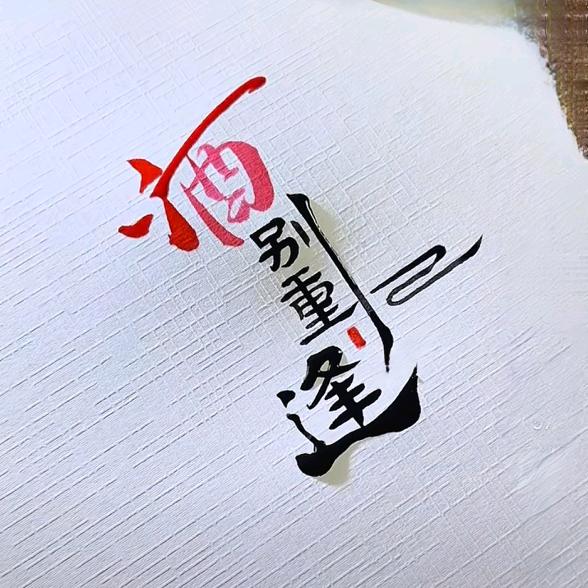 酒别重逢